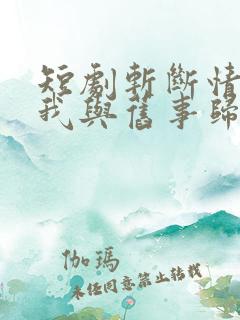 短劇斬斷情
我與舊事歸
伽瑪
未任同意禁止轉載